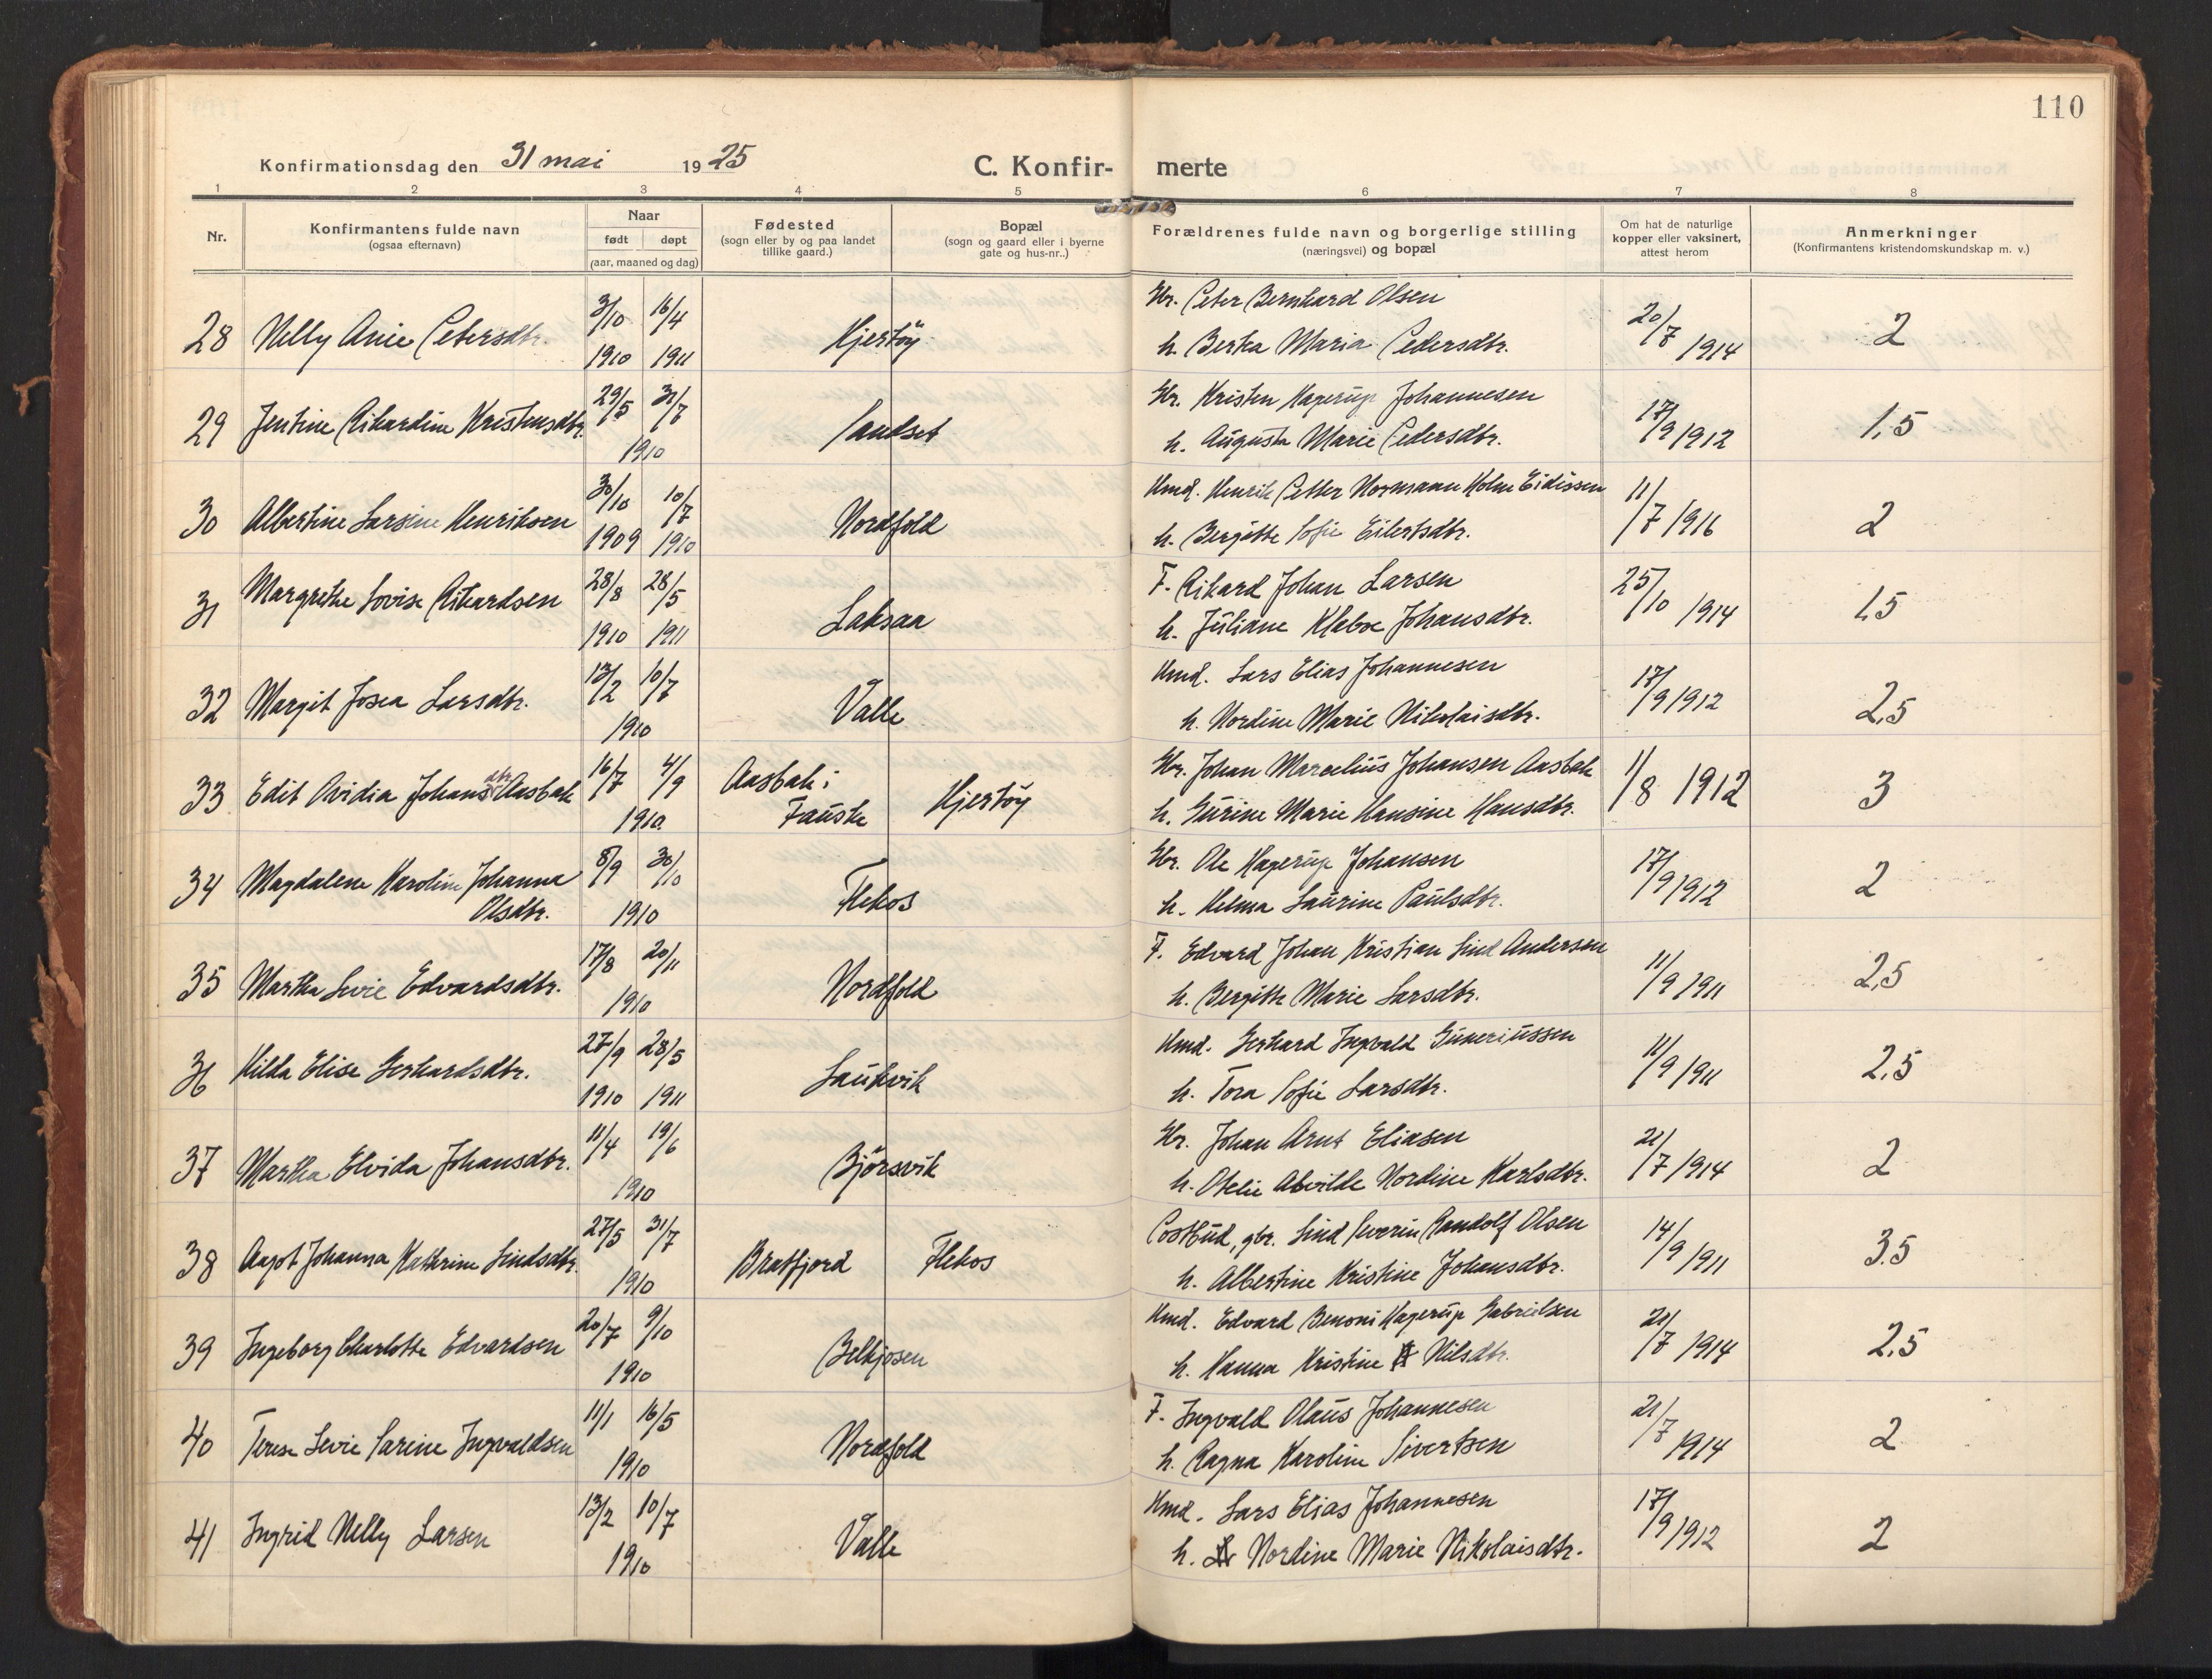 110
Konfirmationsdag den 31 mai 1925
C. Konfir- merte
1 2 3 4 5 6 7 8
Nr.
Konfirmantens fulde navn
(ogsaa efternavn)
Naar
født døpt
(aar, maaned og dag)
Fødested
(sogn eller by og paa landet
tillike gaard.)
Bopæl
(sogn og gaard eller i byerne
gate og hus-nr..)
Forældrenes fulde navn og borgerlige stilling
(næringsvei) og bopæl
Om hat de naturlige
kopper eller vaksinert,
attest herom
Anmerkninger
(Konfirmantens kristendomskundskap m. v.)
28 Nelly Anie Petersdtr. 3/10 1910 16/4 1911 Kjertöy
Gbr. Peter Bernhard Olsen
h. Berka Maria Pedersdtr. 20/7 1914 2
29 Jentine Rikardine Kristensdtr. 29/5 30/7 1910 Sandset
Gbr. Kristen Hagerup Johannesen
h. Augusta Marie Pedersdtr. 17/9 1912 1,5
30 Albertine Larsine Henriksen 30/10 1909 10/7 1910 Nordfold
Kmd. Henrik Petter Normann Holm Eidissen
h. Bergitte Sofie Eilertsdtr. 11/7 1916 2
31 Margrethe Lovise Rikardsen 28/8 1910 28/5 1911 Laksaa
F. Rikard Johan Larsen
h. Juliane Klaboe Johansdtr. 25/10 1914 1,5
32 Margit Josea Larsdtr. 13/2 10/7 1910 Valle
Kmd. Lars Elias Johannesen
h. Nordine Marie Nikolaisdtr. 17/9 1912 2,5
33 Edit Ovidia Johansdtr. Aasbak 16/7 4/9 1910. Aasbak i Fauske Kjertöy
Gbr. Johan Marcelius Johansen Aasbak
h. Gurine Marie Hansine Hansdtr. 11/8 1912 3
34 Magdalene Karoline Johanna
Olsdtr. 8/9 30/10 1910 Flekos
Gbr. Ole Hagerup Johansen
h. Helma Laurine Paulsdtr. 17/9 1912 2
35 Martha Levie Edvardsdtr. 17/8 20/11 1910 Nordfold
F. Edvard Johan Kristian Lind Andersen
h. Bergitte Marie Larsdtr. 11/9 1911 2,5
36 Hilda Elise Gerhardsdtr. 27/9 1910 28/5 1911 Laukvik
Kmd. Gerhard Ingvald Guneriussen
h. Tora Sofie Larsdtr. 11/9 1911 2,5
37 Martha Elvida Johansdtr. 11/4 19/6 1910 Björsvik
Gbr. Johan Arnt Eliasen
h. Otelie Alvilde Nordine Karlsdtr. 21/7 1914 2
38 Aagot Johanna Kathrine Lindsdtr. 27/5 31/7 1910 Bratfjord Flekos
Postbud, gbr. Lind Severin Randolf Olsen
h. Albertine Kristine Johansdtr. 14/9 1911 3.5
39 Ingeborg Charlotte Edvardsen 20/7 9/10 1910 Belkjosen
Kmd. Edvard Benoni Hagerup Gabrielsen
h. Hanna Kristine Nilsdtr. 21/7 1914 2,5
40 Terese Levie Sarine Ingvaldsen 11/1 16/5 1910 Nordfold
F. Ingvald Olaus Johannesen
h. Ragna Karoline Sivertsen 21/7 1914 2
41 Ingrid Nelly Larsen 13/2 10/7 1910 Valle
Kmd. Lars Elias Johannesen
h. Nordine Marie Nikolaisdtr. 17/9 1912 2